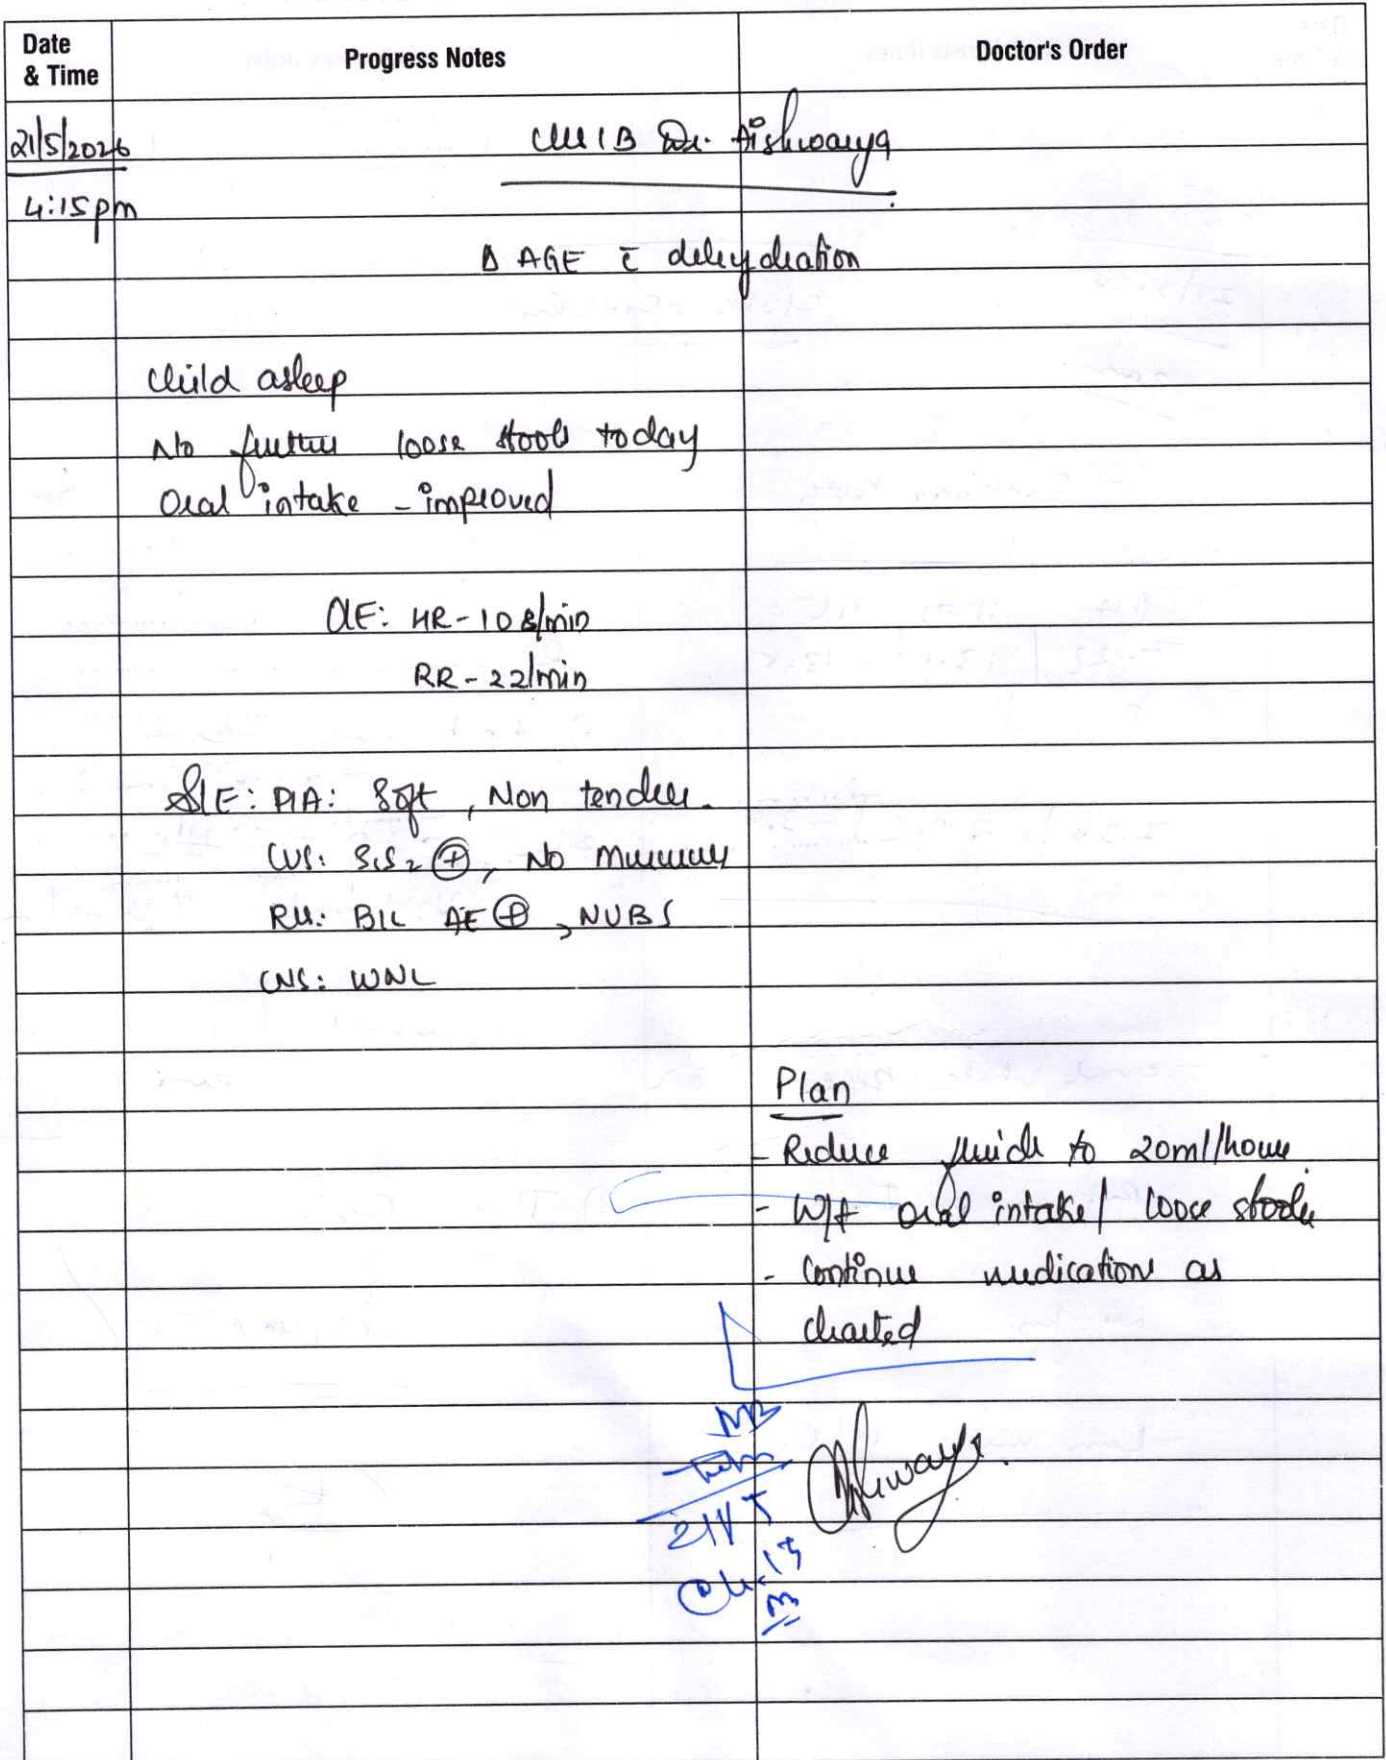 Date & Time
Progress Notes
Doctor's Order
21/5/2026
C/S/B Dr. Aishwarya
4:15pm
Δ AGE c̄ dehydration
Child asleep
No further loose stools today
Oral intake - improved
O/E: HR - 108/min
RR - 22/min
S/E: P/A: Soft, Non tender.
CVS: S1S2 ⊕, No murmurs
RS: B/L AE ⊕, NVBS
CNS: WNL
Plan
- Reduce fluids to 20ml/hour.
- W/f oral intake / loose stools
- Continue medications as
charted
21/5